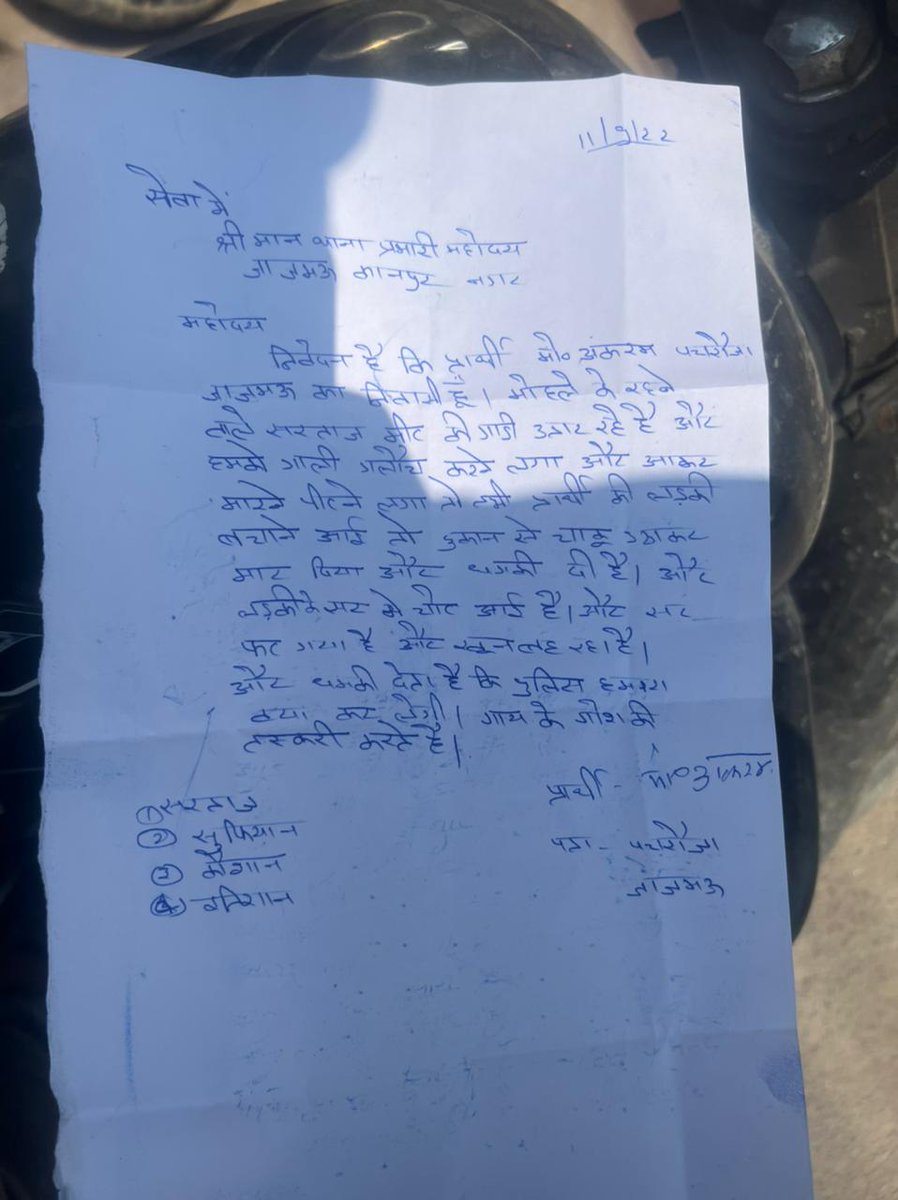 11/9/22
सेवा में
श्री मान थाना प्रभारी महोदय
जाजमऊ कानपुर नगर
महोदय
निवेदन है कि प्रार्थी मो० अकरम पचरौजा
जाजमऊ का निवासी हूँ। मोहल्ले के रहने
वाले सरताज मीट की गाडी उतार रहे है और
हमको गाली गलौच करने लगा और आकर
मारने पीटने लगा तो तभी प्रार्थी की लड़की
बचाने आई तो दुकान से चाकू उठाकर
मार दिया और धमकी दी है। और
लड़की के सर मे चोट आई है। और सर
फट गया है और खून बह रहा है।
और धमकी देता है कि पुलिस हमारा
क्या कर लेगी। गाय के गोश की
तस्करी करते है।
प्रार्थी - मो०
① सरताज
② सूफियान
पता - पचरौजा
③
जाजमऊ
④